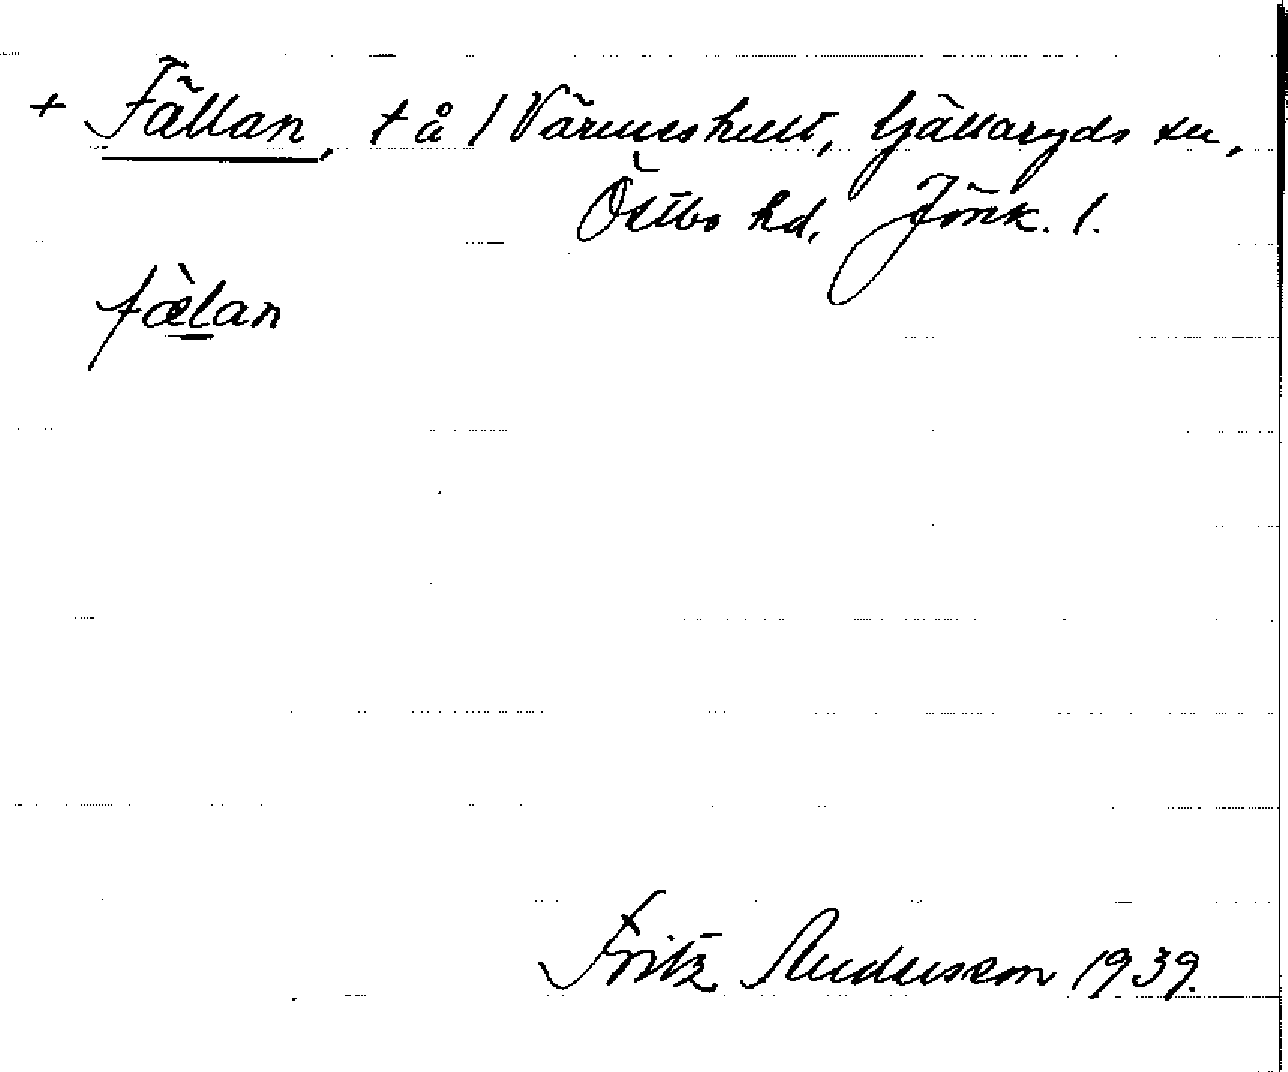 + Fällan, t å 1 Värmeshult, Gällaryds sn,
Östbo hd, Jönk. l.
fæ̀lan
Fritz Andersson 1939.